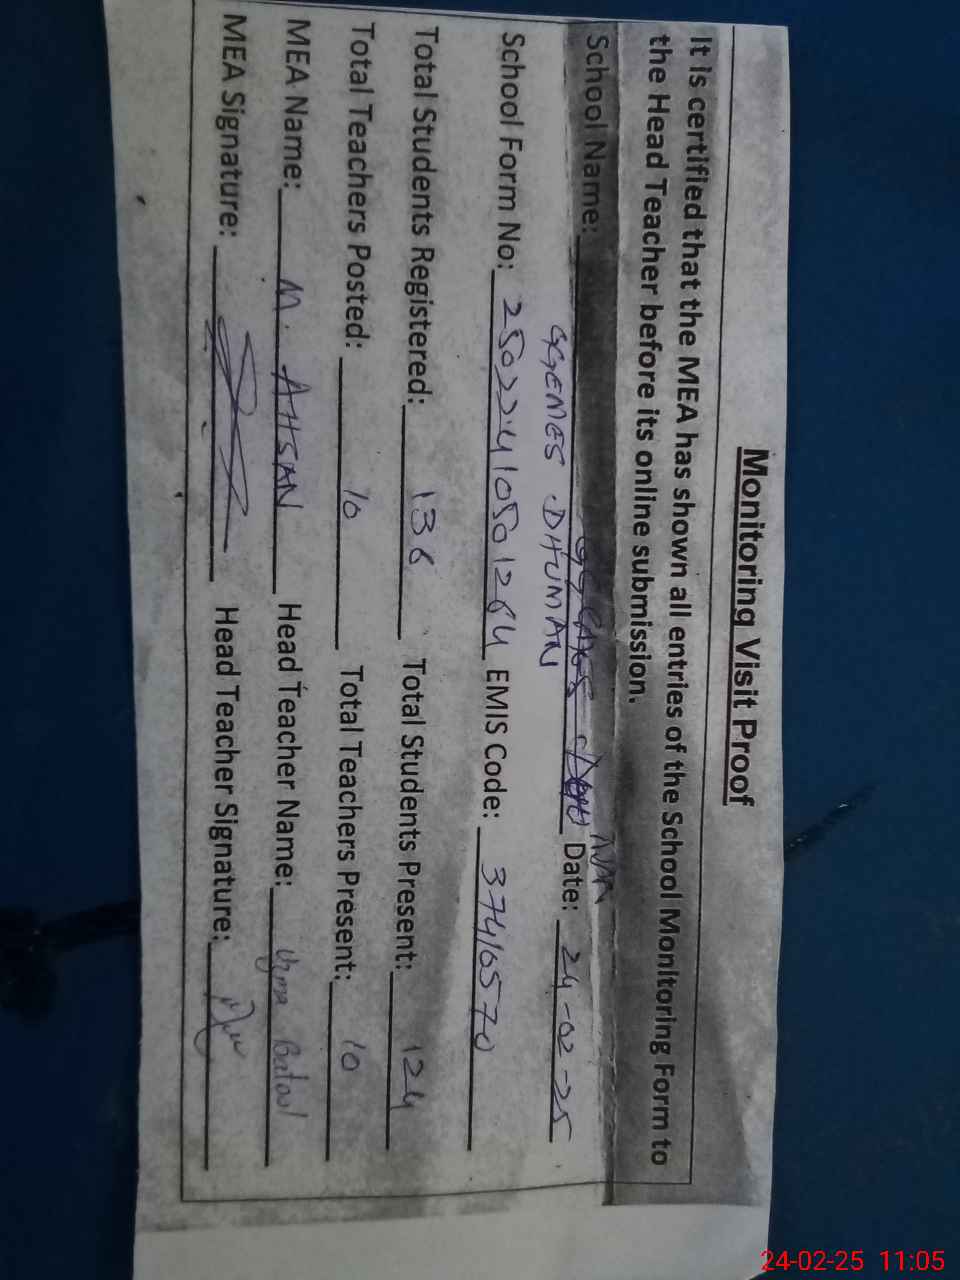 Monitoring Visit Proof
It is certified that the MEA has shown all entries of the School Monitoring Form to
the Head Teacher before its online submission.
School Name: Date: 24-02-25
GGEMES DHUMAN
School Form No: 25022410501264 EMIS Code: 37410570
Total Students Registered: 136 Total Students Present: 124
Total Teachers Posted: 10 Total Teachers Present: 10
MEA Name: M. AHSAN Head Teacher Name: Uzma Batool
MEA Signature: Head Teacher Signature:
24-02-25 11:05